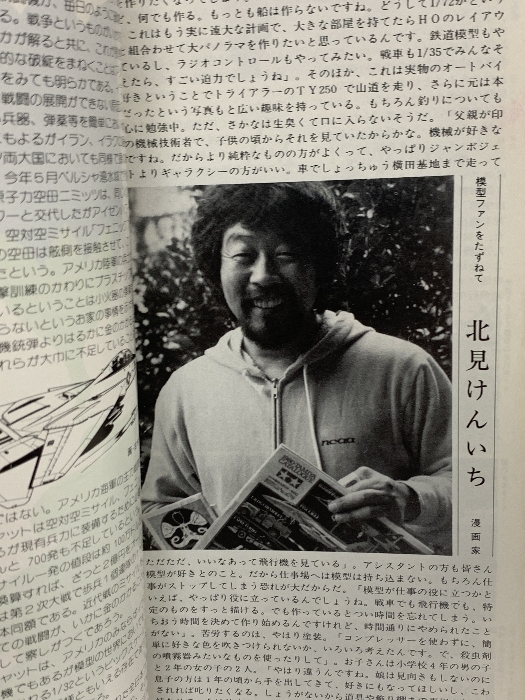 る。戦争というものが
力が解ると共に、これが
的な破綻をまねくことは
をみても明らかである。
戦闘の展開ができない
兵器、弾薬等を簡単に
にもよるがイラン、イラ
ソ両大国においても同様
今年5月ペルシャ湾
原子力空母ニミッツは、
ワーと交代したがアイゼン
空対空ミサイル「フェニッ
の空母は舷側を接触させて、
たという。アメリカ陸軍の
撃訓練のかわりにプラスチッ
いるということは小火器の
らないというお家の事情を
機銃弾よりはるかに金のかか
れらが大巾に不足しているこ
ではない。アメリカ海軍の主力
ャットは空対空ミサイル、フェニ
るが現有兵力に装備するために
んと 700発も不足していると
サイル一発の値段は約 100万
換算すれば、ざっと2億円を
は第2次大戦で歩兵1個連隊
本同額である。近代戦のサンプ
ての戦闘が、いかに金のかかる
して察しがつくであろう。
機でもあるが模型の世界に
れる1/32というビッグ
作りたくなってしま
ど、何でも作る。もっとも船は作らないですね。どうして1/72かとい
これはもう実に遠大な計画で、大きな部屋を持てたらHOのレイアウ
と組合わせて大パノラマを作りたいと思っているんです。鉄道模型もや
ているし、ラジオコントロールもやってみたい。戦車も1/35でみんなそ
えたら、すごい迫力でしょうね」。そのほか、これは実物のオートバイ
好きということでトライアラーのTY250で山道を走り、さらに元は本
だったという写真もと広い趣味を持っている。もちろん釣りについても
心に勉強中。ただ、さかなは生臭くて口に入らないそうだ。「父親が印
の機械技術者で、子供の頃からそれを見ていたからかな。機械が好きな
ですね。だからより純粋なものの方がよくって、やっぱりジャンボジェ
トよりギャラクシーの方がいい。車でしょっちゅう横田基地まで走って
模型ファンをたずねて
北見けんいち
漫画家
neon
ただただ、いいなあって飛行機を見ている」。アシスタントの方も皆さん
模型が好きとのこと。だから仕事場へは模型は持ち込まない。もちろん仕
事がストップしてしまう恐れが大だからだ。「模型が仕事の役に立つかと
いえば、やっぱり役に立っているんでしょうね。戦車でも飛行機でも、特
定のものをすっと描ける。でも作っているとつい時間を忘れてしまう。い
ちおう時間を決めて作り始めるんですけれど、時間通りにやめられたこと
がない」。苦労するのは、やはり塗装。「コンプレッサーを使わずに、簡
単に好きな色を吹きつけられないか、いろいろ考えたんです。で、殺虫剤
の噴霧器みたいなものを使ったりして」。お子さんは小学校4年の男の子
と2年の女の子の2人。「やはり違うんですね。娘は見向きもしないのに
息子の方は1年の頃から手を出してきて。好きにもなってほしいし、これ